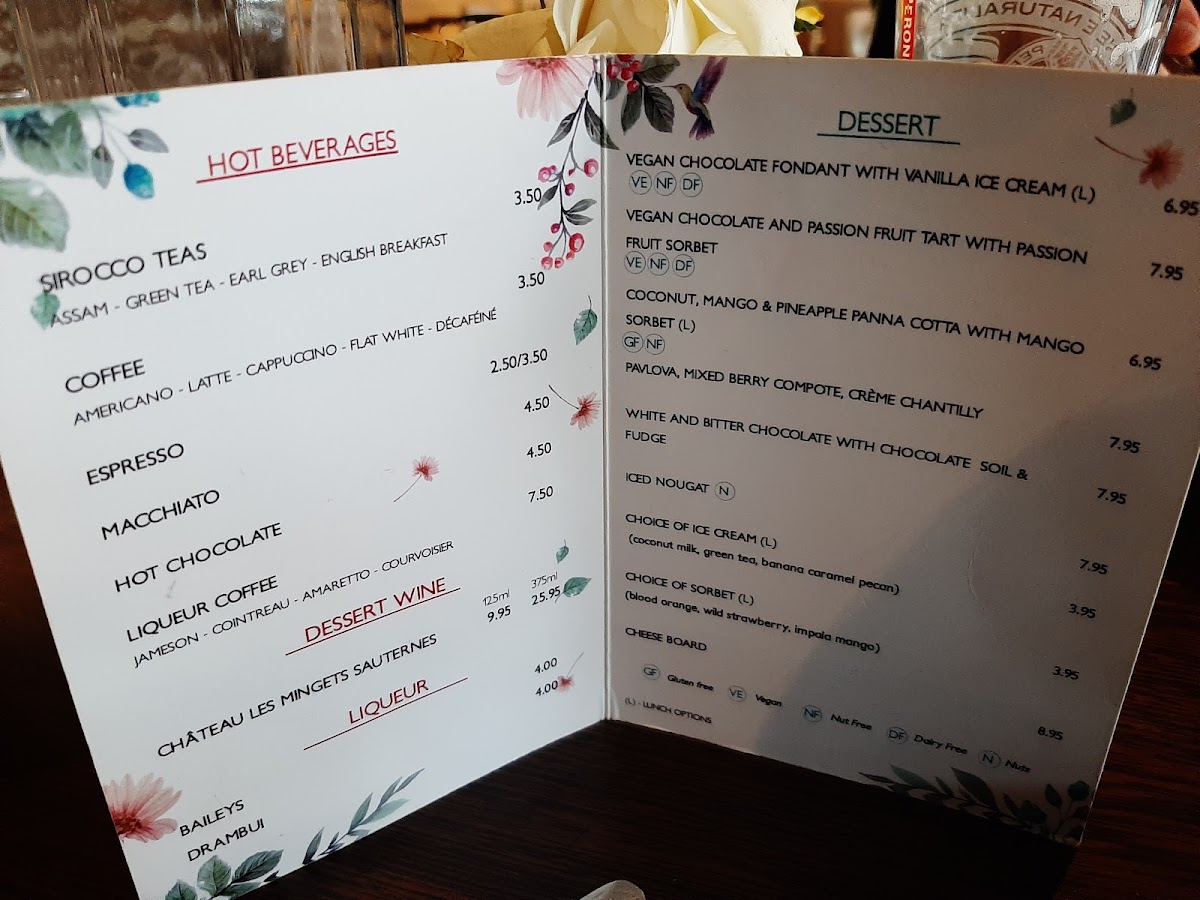 HOT BEVERAGES
SIROCCO TEAS 3.50
ASSAM - GREEN TEA - EARL GREY - ENGLISH BREAKFAST
COFFEE 3.50
AMERICANO - LATTE - CAPPUCCINO - FLAT WHITE - DÉCAFÉINÉ
ESPRESSO 2.50/3.50
MACCHIATO 4.50
HOT CHOCOLATE 4.50
LIQUEUR COFFEE 7.50
JAMESON - COINTREAU - AMARETTO - COURVOISIER
DESSERT WINE
125ml 375ml
CHÂTEAU LES MINGETS SAUTERNES 9.95 25.95
LIQUEUR
BAILEYS 4.00
DRAMBUI 4.00
DESSERT
VEGAN CHOCOLATE FONDANT WITH VANILLA ICE CREAM (L) 6.95
VE NF DF
VEGAN CHOCOLATE AND PASSION FRUIT TART WITH PASSION 7.95
FRUIT SORBET
VE NF DF
COCONUT, MANGO & PINEAPPLE PANNA COTTA WITH MANGO 6.95
SORBET (L)
GF NF
PAVLOVA, MIXED BERRY COMPOTE, CRÈME CHANTILLY 7.95
WHITE AND BITTER CHOCOLATE WITH CHOCOLATE SOIL & 7.95
FUDGE
ICED NOUGAT N 7.95
CHOICE OF ICE CREAM (L) 3.95
(coconut milk, green tea, banana caramel pecan)
CHOICE OF SORBET (L) 3.95
(blood orange, wild strawberry, impala mango)
CHEESE BOARD 8.95
GF Gluten free VE Vegan NF Nut Free DF Dairy Free N Nuts
(L) - LUNCH OPTIONS